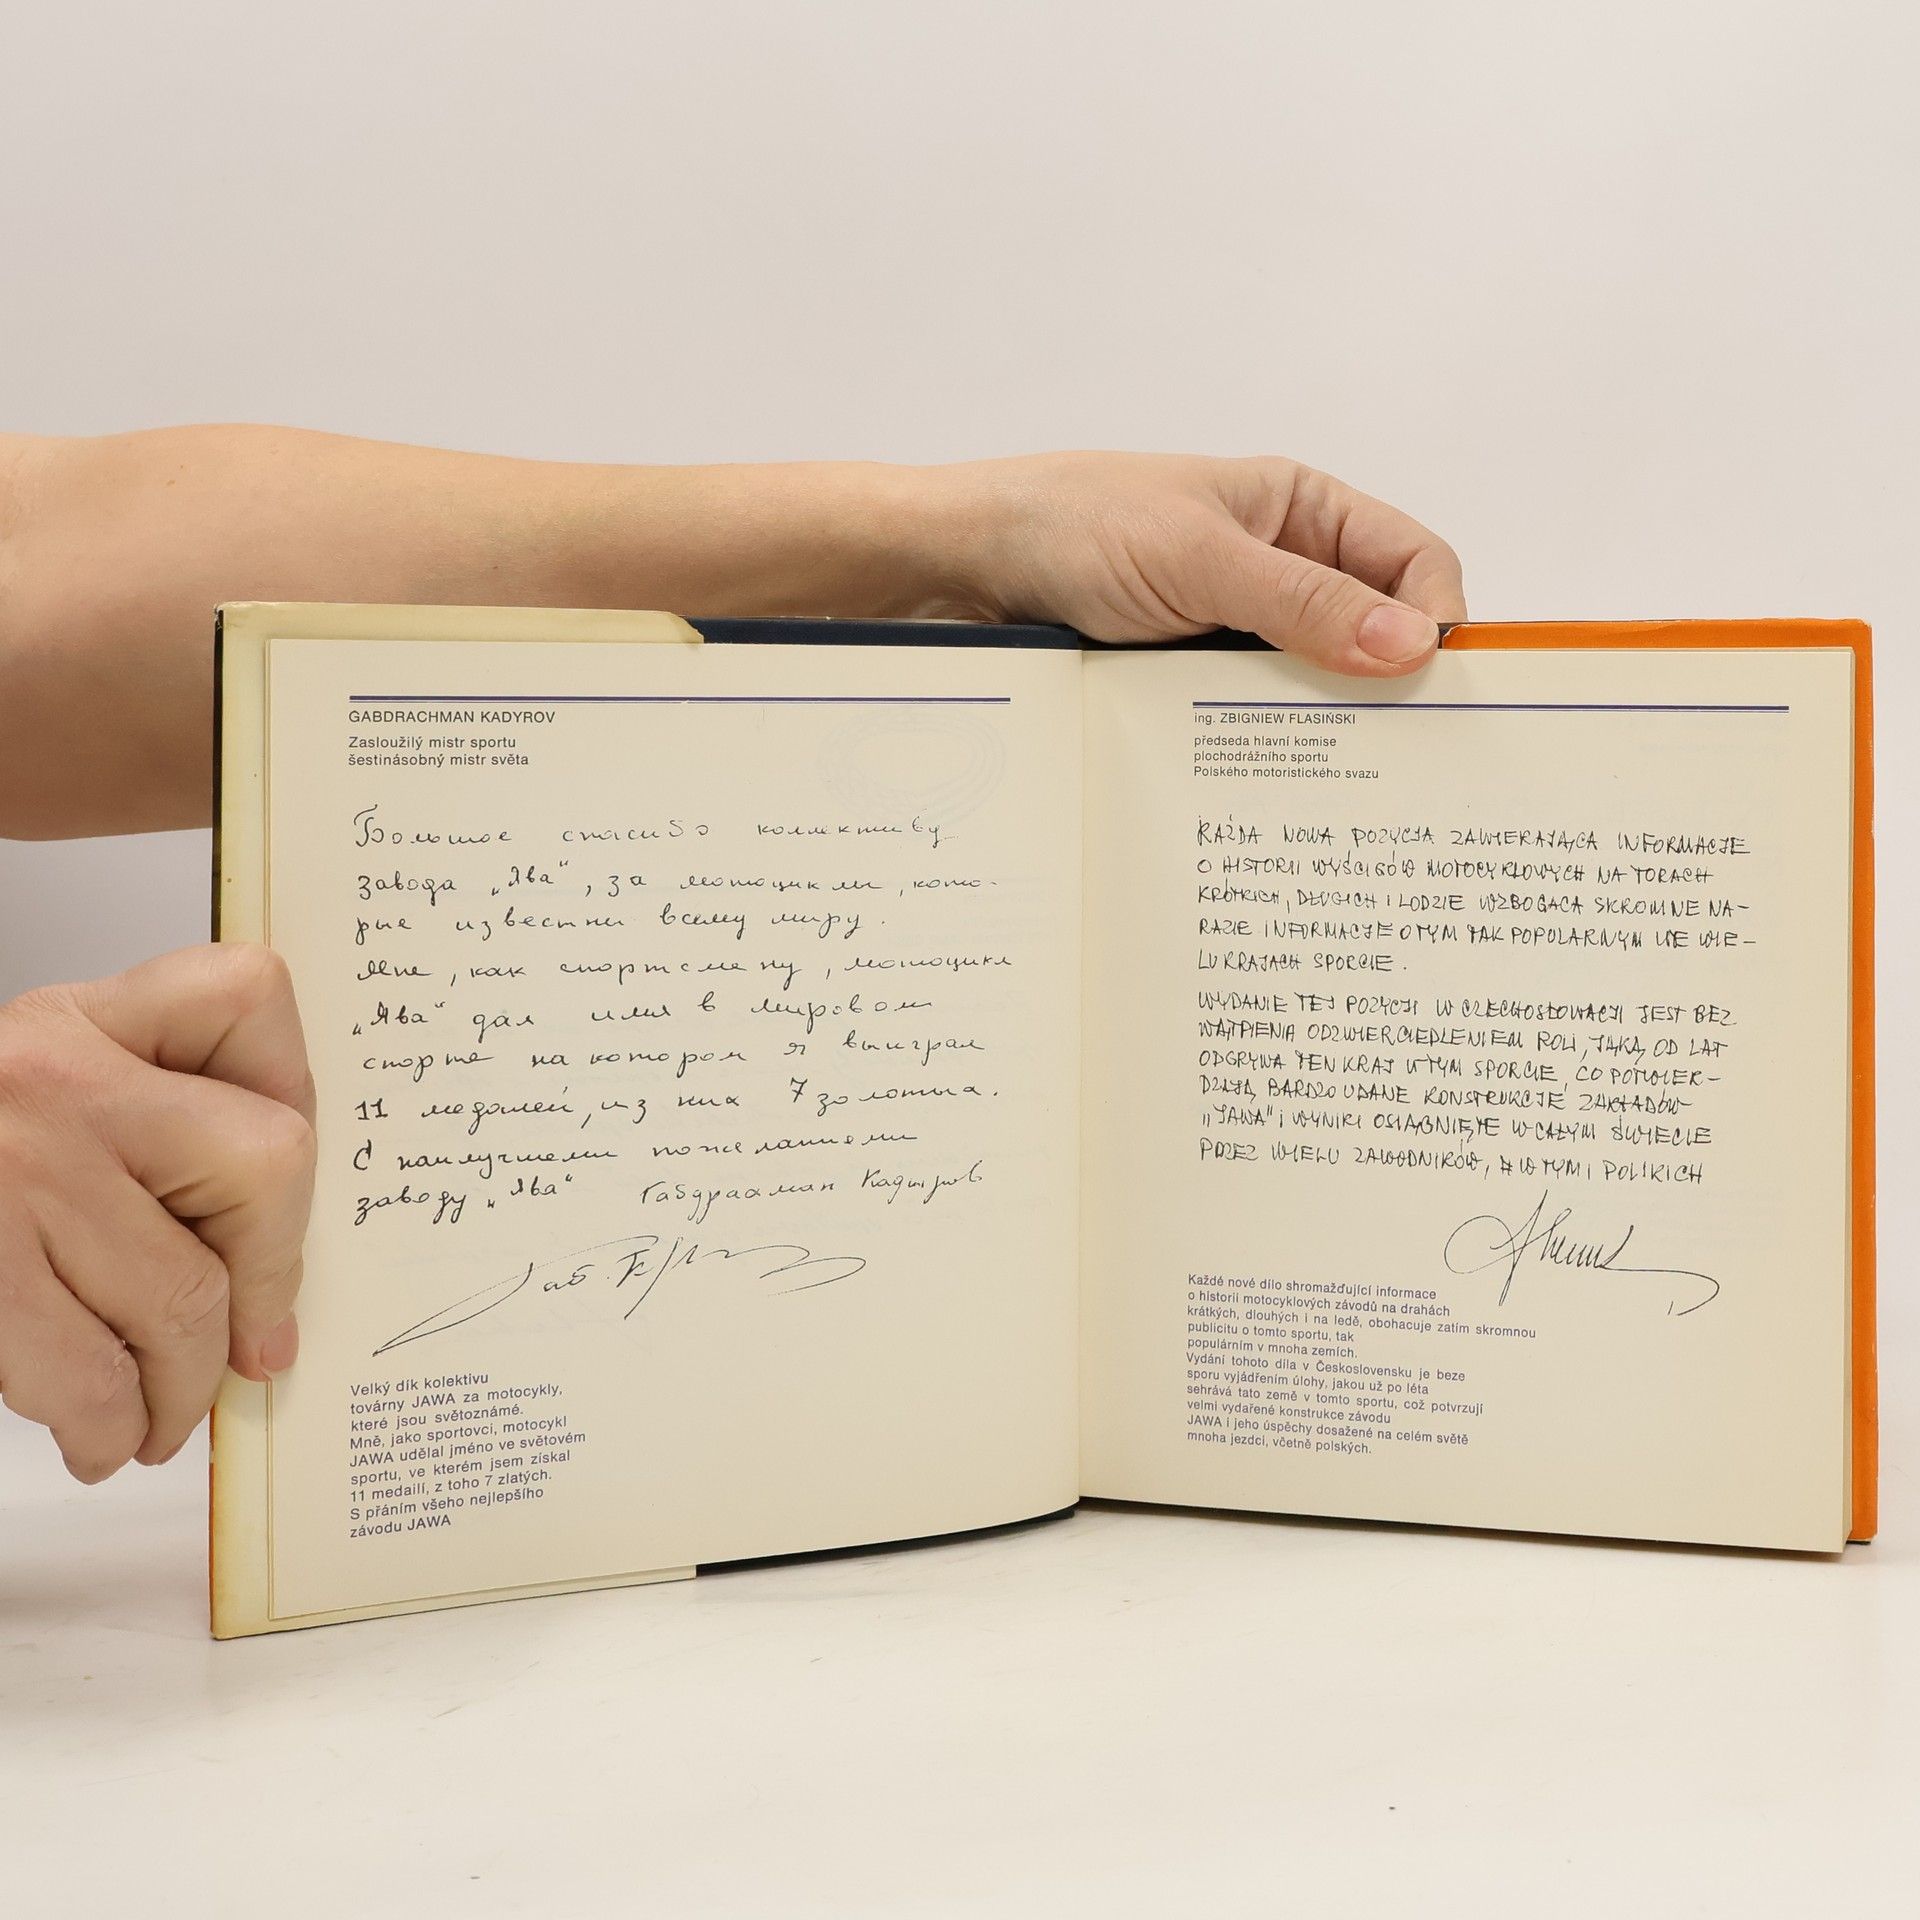 GABDRACHMAN KADYROV
Zasloužilý mistr sportu
šestinásobný mistr světa
Большое спасибо коллективу
завода „Ява“, за мотоциклы, кото-
рые известны всему миру.
Мне, как спортсмену, мотоцикл
„Ява“ дал имя в мировом
спорте на котором я выиграл
11 медалей, из них 7 золотых.
С наилучшеми пожеланиеми
заводу „Ява“ Габдрахман Кадыров
Velký dík kolektivu
továrny JAWA za motocykly,
které jsou světoznámé.
Mně, jako sportovci, motocykl
JAWA udělal jméno ve světovém
sportu, ve kterém jsem získal
11 medailí, z toho 7 zlatých.
S přáním všeho nejlepšího
závodu JAWA
ing. ZBIGNIEW FLASIŃSKI
předseda hlavní komise
plochodrážního sportu
Polského motoristického svazu
KAŻDA NOWA POZYCJA ZAWIERAJĄCA INFORMACJE
O HISTORII WYŚCIGÓW MOTOCYKLOWYCH NA TORACH
KRÓTKICH, DŁUGICH I LODZIE WZBOGACA SKROMNE NA-
RAZIE INFORMACJE O TYM TAK POPULARNYM WE WIE-
LU KRAJACH SPORCIE.
WYDANIE TEJ POZYCJI W CZECHOSŁOWACJI JEST BEZ
WĄTPIENIA ODZWIERCIEDLENIEM ROLI, JAKĄ OD LAT
ODGRYWA TEN KRAJ W TYM SPORCIE, CO POTWIER-
DZAJĄ BARDZO UDANE KONSTRUKCJE ZAKŁADÓW
„JAWA“ I WYNIKI OSIĄGNIĘTE W CAŁYM ŚWIECIE
PRZEZ WIELU ZAWODNIKÓW, A W TYM I POLSKICH
Každé nové dílo shromažďující informace
o historii motocyklových závodů na drahách
krátkých, dlouhých i na ledě, obohacuje zatím skromnou
publicitu o tomto sportu, tak
populárním v mnoha zemích.
Vydání tohoto díla v Československu je beze
sporu vyjádřením úlohy, jakou už po léta
sehrává tato země v tomto sportu, což potvrzují
velmi vydařené konstrukce závodu
JAWA i jeho úspěchy dosažené na celém světě
mnoha jezdci, včetně polských.